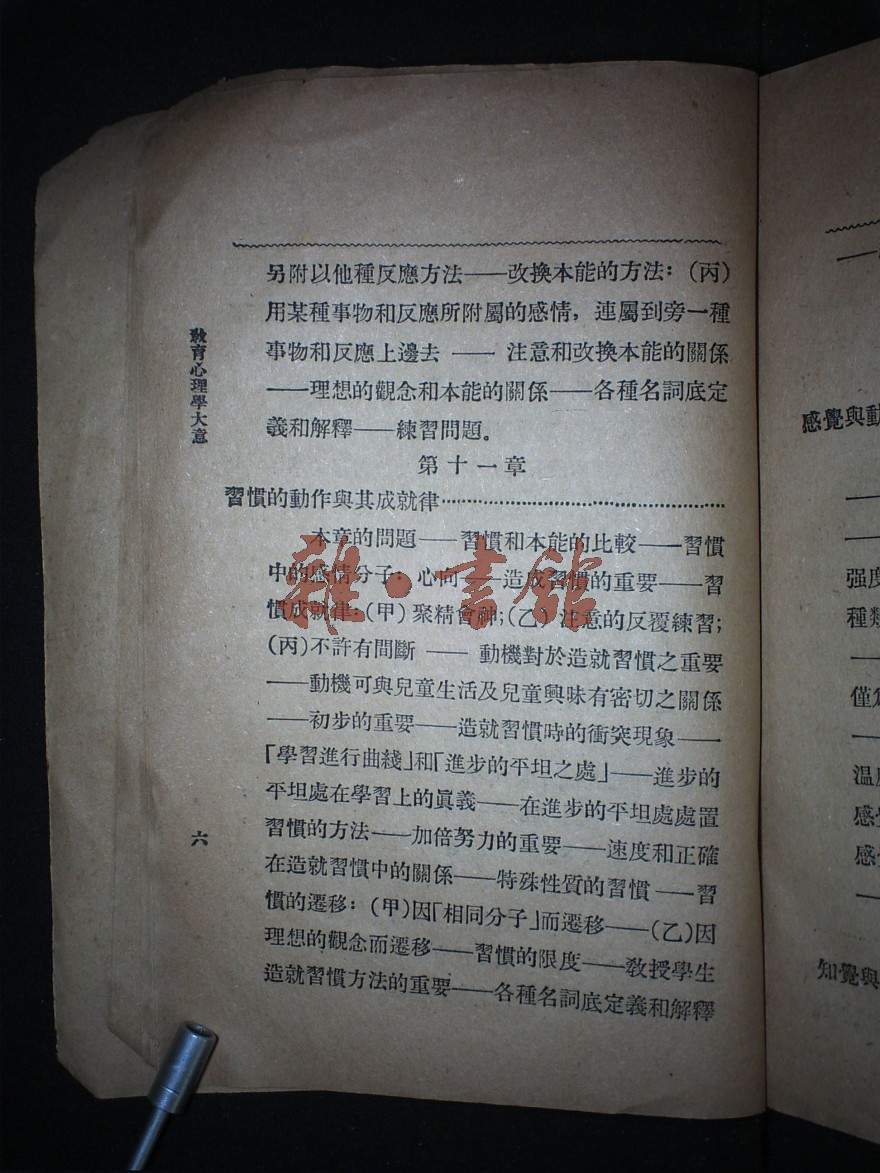 另附以他種反應方法——改換本能的方法：(丙)
用某種事物和反應所附屬的感情，連屬到旁一種
事物和反應上邊去——注意和改換本能的關係
——理想的觀念和本能的關係——各種名詞底定
義和解釋——練習問題。
第十一章
習慣的動作與其成就律………………………………
本章的問題——習慣和本能的比較——習慣
中的感情分子：心向——造成習慣的重要——習
慣成就律：(甲)聚精會神；(乙)注意的反覆練習；
(丙)不許有間斷——動機對於造就習慣之重要
——動機可與兒童生活及兒童興味有密切之關係
——初步的重要——造就習慣時的衝突現象——
「學習進行曲綫」和「進步的平坦之處」——進步的
平坦處在學習上的眞義——在進步的平坦處處置
習慣的方法——加倍努力的重要——速度和正確
在造就習慣中的關係——特殊性質的習慣——習
慣的遷移：(甲)因「相同分子」而遷移——(乙)因
理想的觀念而遷移——習慣的限度——教授學生
造就習慣方法的重要——各種名詞底定義和解釋
教育心理學大意
六
雜·書館
感覺與動
强度
種類
僅爲
溫度
感覺
感覺
知覺與